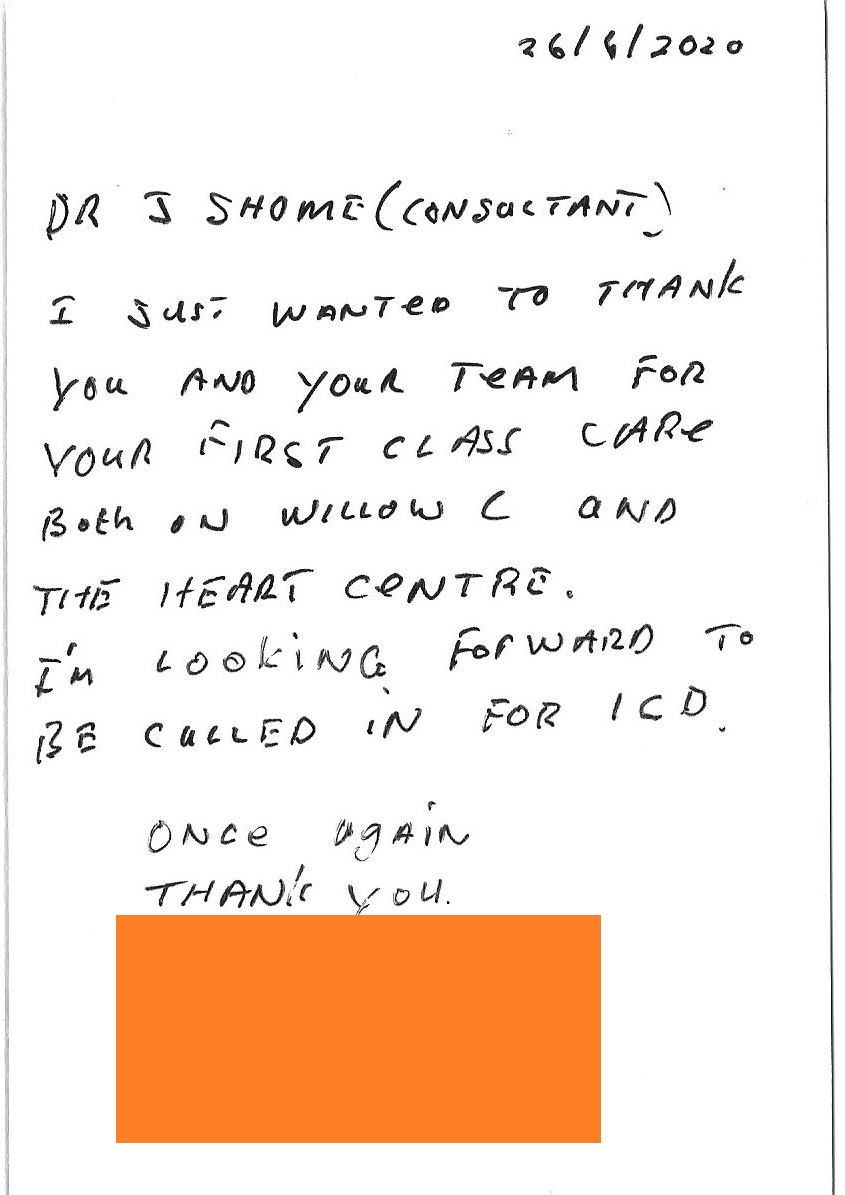 26/6/2020
DR J SHOME (CONSULTANT)
I JUST WANTED TO THANK
YOU AND YOUR TEAM FOR
YOUR FIRST CLASS CARE
Both ON WILLOW C AND
THE HEART CENTRE.
I'M LOOKING FORWARD TO
BE CALLED IN FOR ICD.
ONCE AGAIN
THANK YOU.